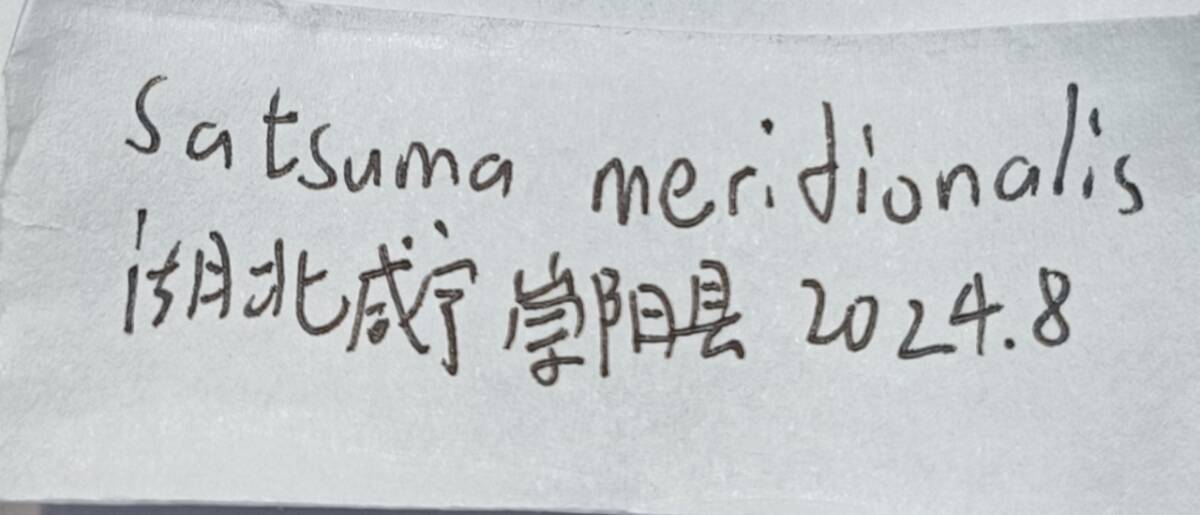 Satsuma meridionalis
湖北咸宁崇阳县 2024.8